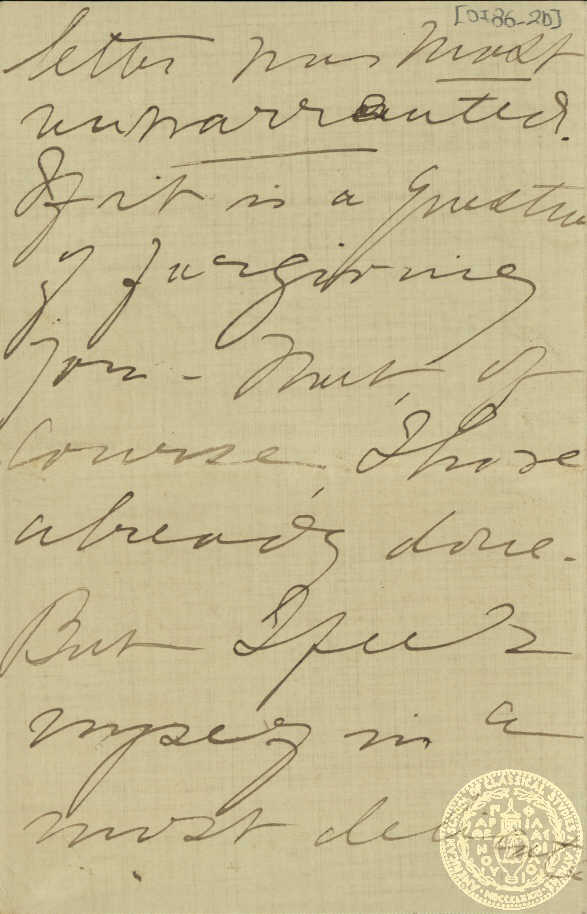 [DI86-20]
letter was most
unwarranted.
If it is a question
of forgiving
you - that, of
course, I have
already done.
But I feel
myself in a
most